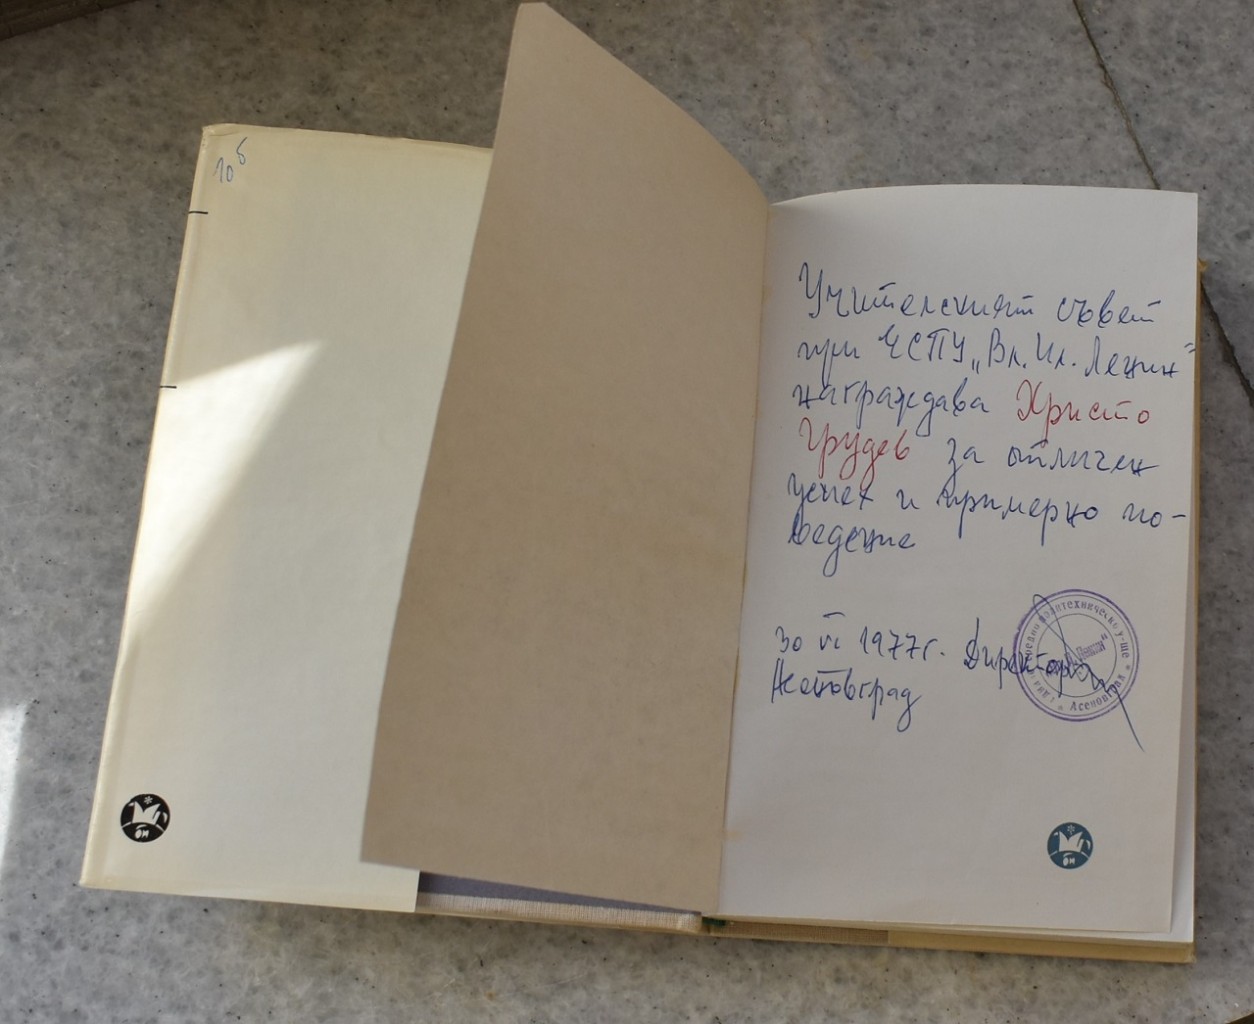 10б
Учителският съвет
при ЕСПУ „Вл. Ил. Ленин“
награждава Христо
Грудев за отличен
успех и примерно по-
ведение
30 VI 1977 г. Директор:
Асеновград
политехническо у-ще
Асеновград
би
би